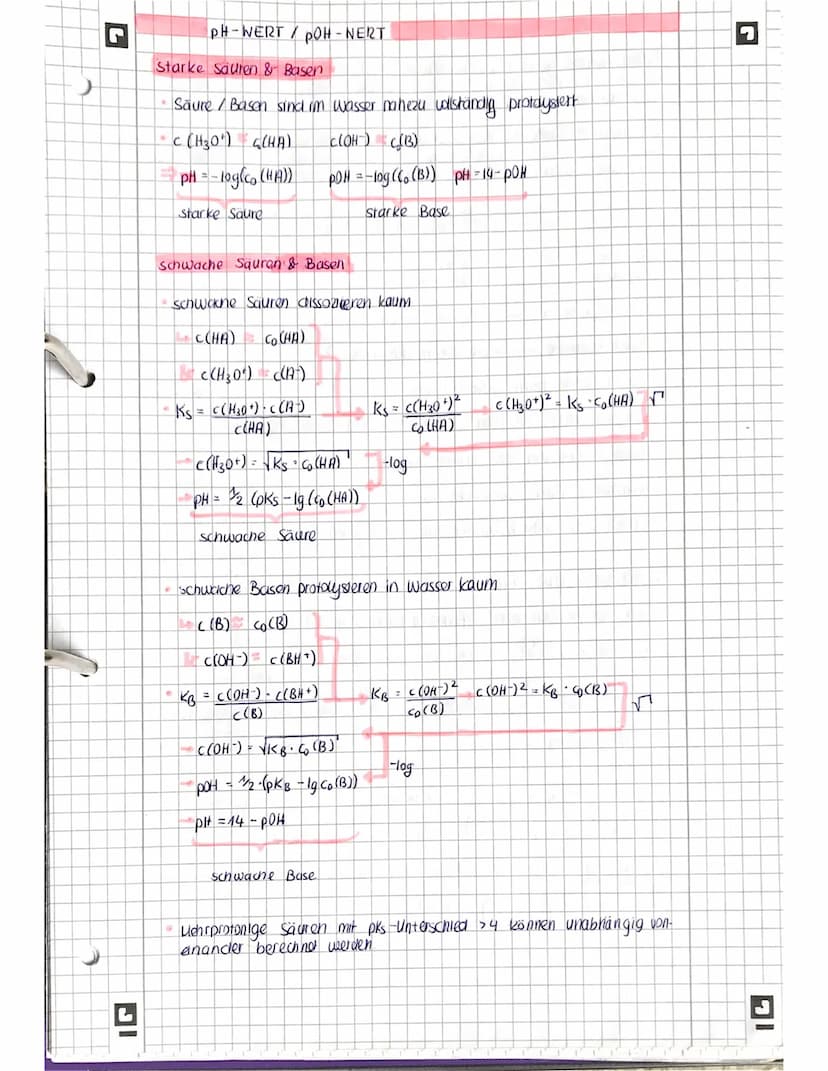 pH-WERT / pOH-WERT
Starke Säuren & Basen
• Säure / Basen sind im Wasser nahezu vollständig protolysiert
• c(H₃O⁺) = c₀(HA) c(OH⁻) = c₀(B)
⇒ pH = -log(c₀(HA)) pOH = -log(c₀(B)) pH = 14 - pOH
starke Säure starke Base
Schwache Säuren & Basen
• schwache Säuren dissoziieren kaum
↳ c(HA) ≈ c₀(HA)
↳ c(H₃O⁺) = c(A⁻)
• Ks = c(H₃O⁺) · c(A⁻) / c(HA) → Ks = c(H₃O⁺)² / c₀(HA) → c(H₃O⁺)² = Ks · c₀(HA) √
→ c(H₃O⁺) = √Ks · c₀(HA) -log
→ pH = 1/2 (pKs - lg(c₀(HA))
schwache Säure
• schwache Basen protolysieren in Wasser kaum
↳ c(B) ≈ c₀(B)
↳ c(OH⁻) = c(BH⁺)
• KB = c(OH⁻) · c(BH⁺) / c(B) → KB = c(OH⁻)² / c₀(B) → c(OH⁻)² = KB · c₀(B) √
→ c(OH⁻) = √KB · c₀(B)
-log
→ pOH = 1/2 · (pKB - lg c₀(B))
→ pH = 14 - pOH
schwache Base
• Mehrprotonige Säuren mit pKs-Unterschied >4 können unabhängig von-
einander berechnet werden